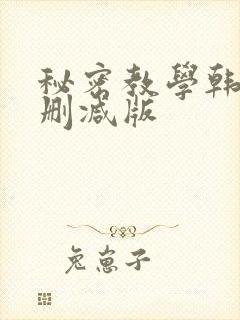 秘密教學韩
删减版
兔崽子